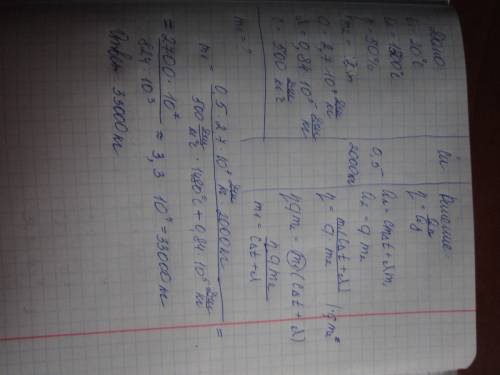 Дано:
t₁ = 20°C
t₂ = 1500°C
η = 50%
m₂ = 2 т
q = 2,7 · 10⁷ Дж/кг
λ = 0,84 · 10⁵ Дж/кг
c = 500 Дж/кг°C
m₁ = ?
Си
0,5
2000кг
Решение:
η = Qп/Qз
Qп = cm₁Δt + λm₁
Qз = q m₂
η = m₁(cΔt + λ) / q m₂ | · q m₂
η q m₂ = m₁(cΔt + λ)
m₁ = η q m₂ / cΔt + λ
m₁ = 0,5 · 2,7 · 10⁷ Дж/кг · 2000кг / 500 Дж/кг°C · 1480°C + 0,84 · 10⁵ Дж/кг =
= 2700 · 10⁷ / 824 · 10³ = 3,3 · 10⁴ = 33000 кг
Ответ: 33000 кг